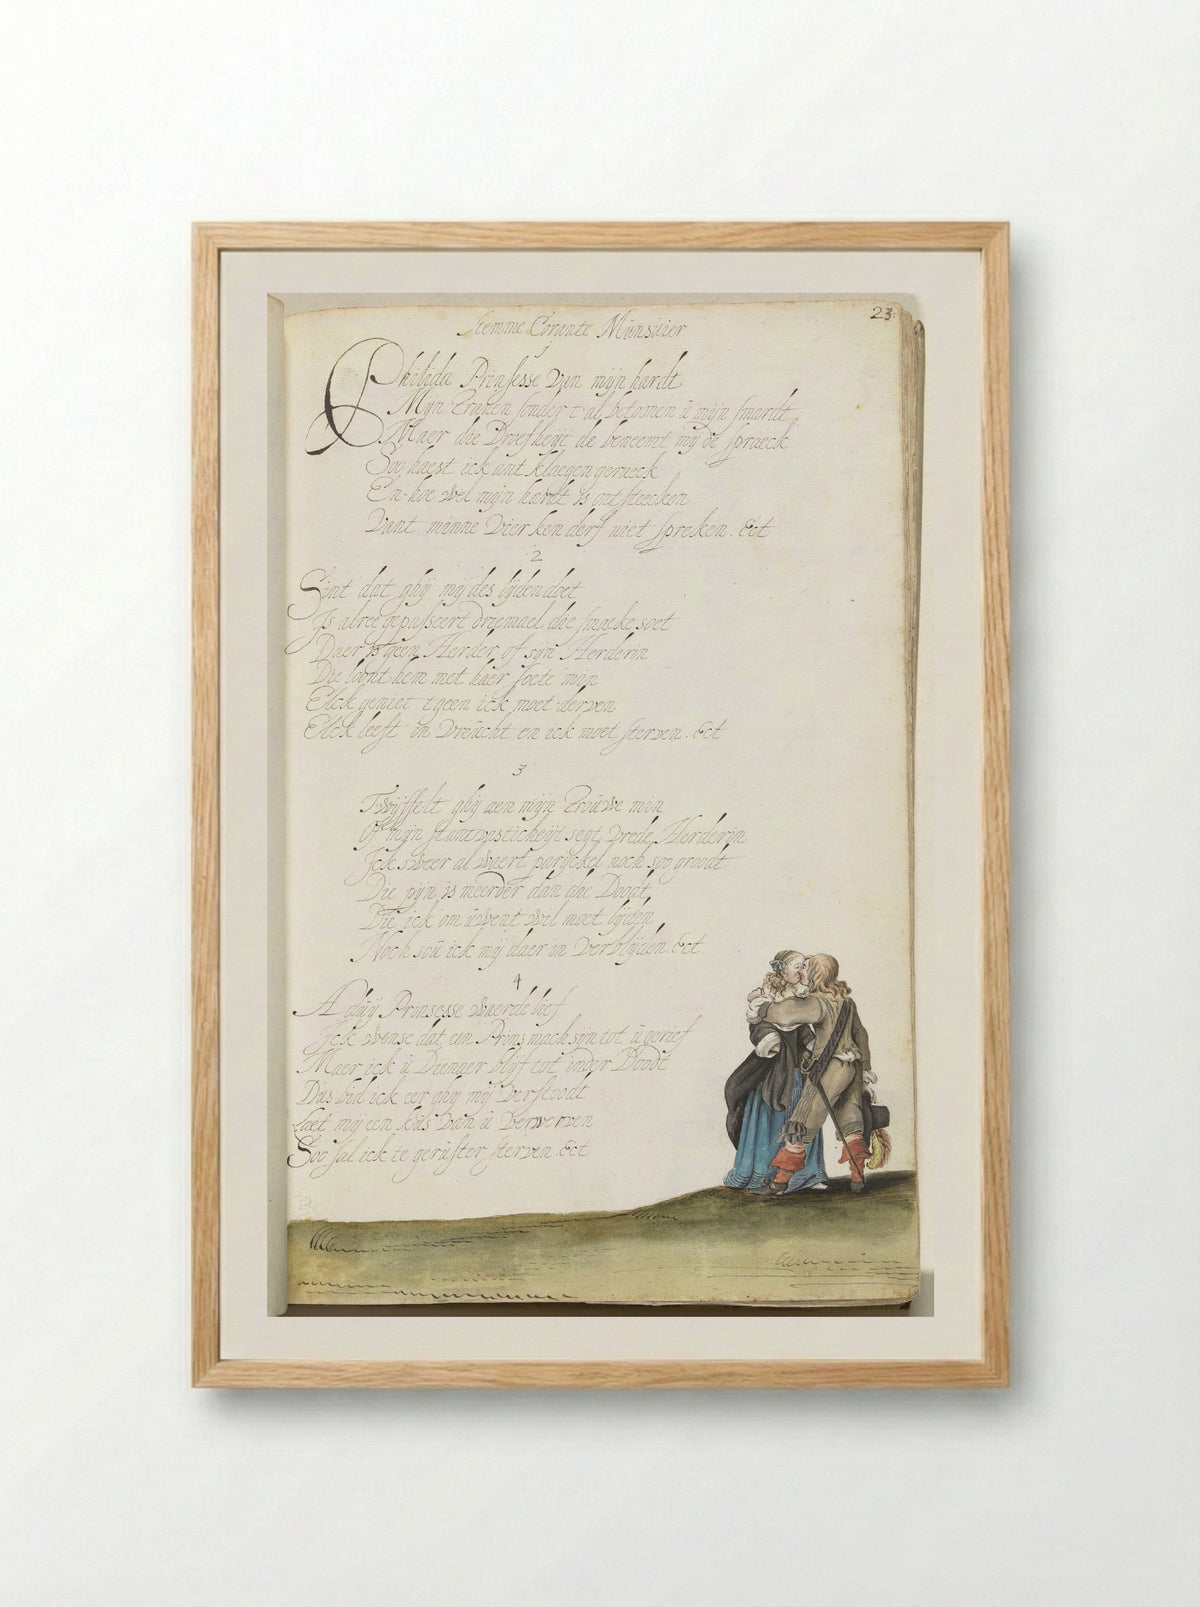 23
Stemme Corante Munsitier
Philida Prinsesse Van mijn hardt
Mijn Tranen sonder tal betoonen u mijn smardt
Maer die Droefheijt de beneemt mij de spraeck
Soo haest ick ant klaegen geraeck
En hoe wel mijn hardt is ontsteecken
Vant minne Vier ken derf niet spreken. &ct
2
Sint dat ghij mij des lijden doet
Is alree gepasseert driemael die smaeke soet
Daer is geen Herder of sijn Herderin
Die loont hem met haer soete min
Elck geniet tgeen ick moet derven
Elck leeft in Vreucht en ick moet sterven. &ct
3
Twijffelt ghij aen mijn Trouwe min
Of mijn stantvasticheijt segt Vrede Herderin
Ick sweer al waert parijckel noch soo groodt
Die pijn is meerder dan die Doodt
Die ick om uwent wil moet lijden
Noch sou ick mij daer in Verblijden. &ct
4
Aduij Prinsesse waerde lief
Ick wense dat een Prins mach sijn tot u gerief
Maer ick u Dienaer blijf tot inder Doodt
Das bid ick eer ghij mij Verstoodt
Laet mij een kus Van u Verwerven
Soo sal ick te geruster sterven. &ct